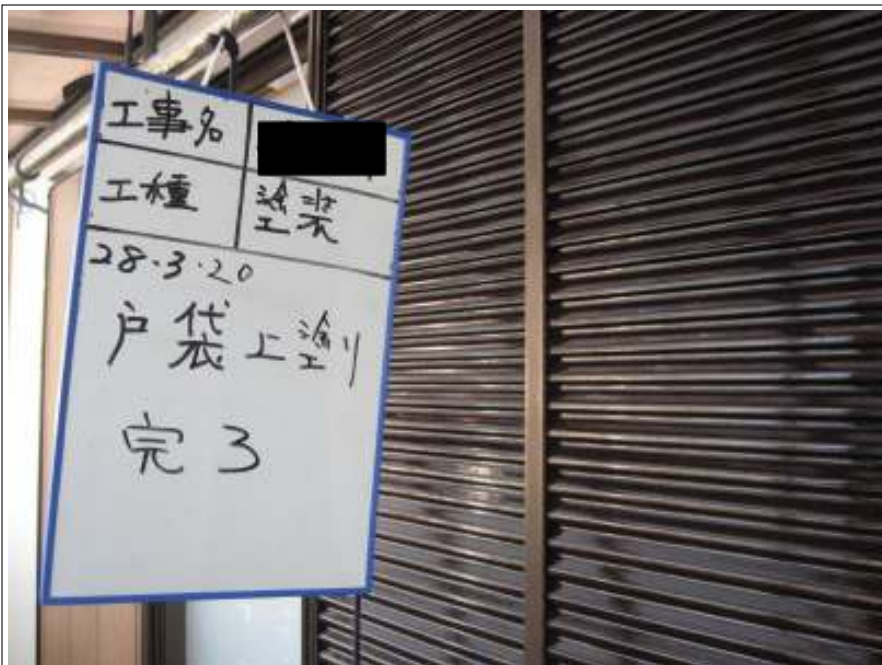 工事名
工種 塗装
28・3・20
戸袋上塗り
完了